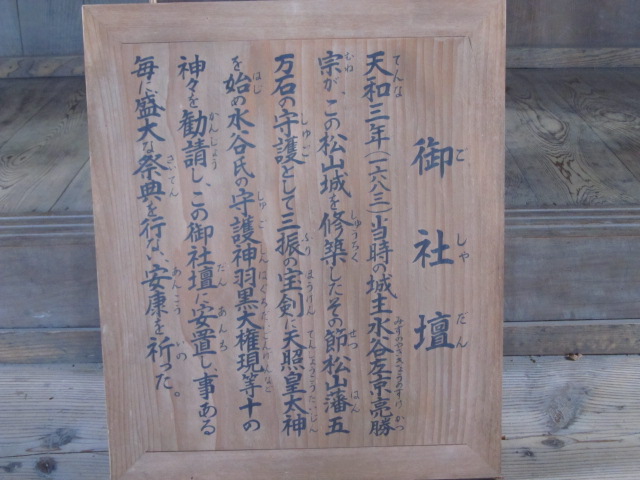 御社壇
ごしゃだん
天和三年(一六八三)当時の城主水谷左京亮勝
宗が、この松山城を修築したその節松山藩五
万石の守護として三振の宝剣に天照皇太神
を始め水谷氏の守護神羽黒大権現等十の
神々を勧請し、この御社壇に安置し、事ある
毎に盛大な祭典を行ない、安康を祈った。